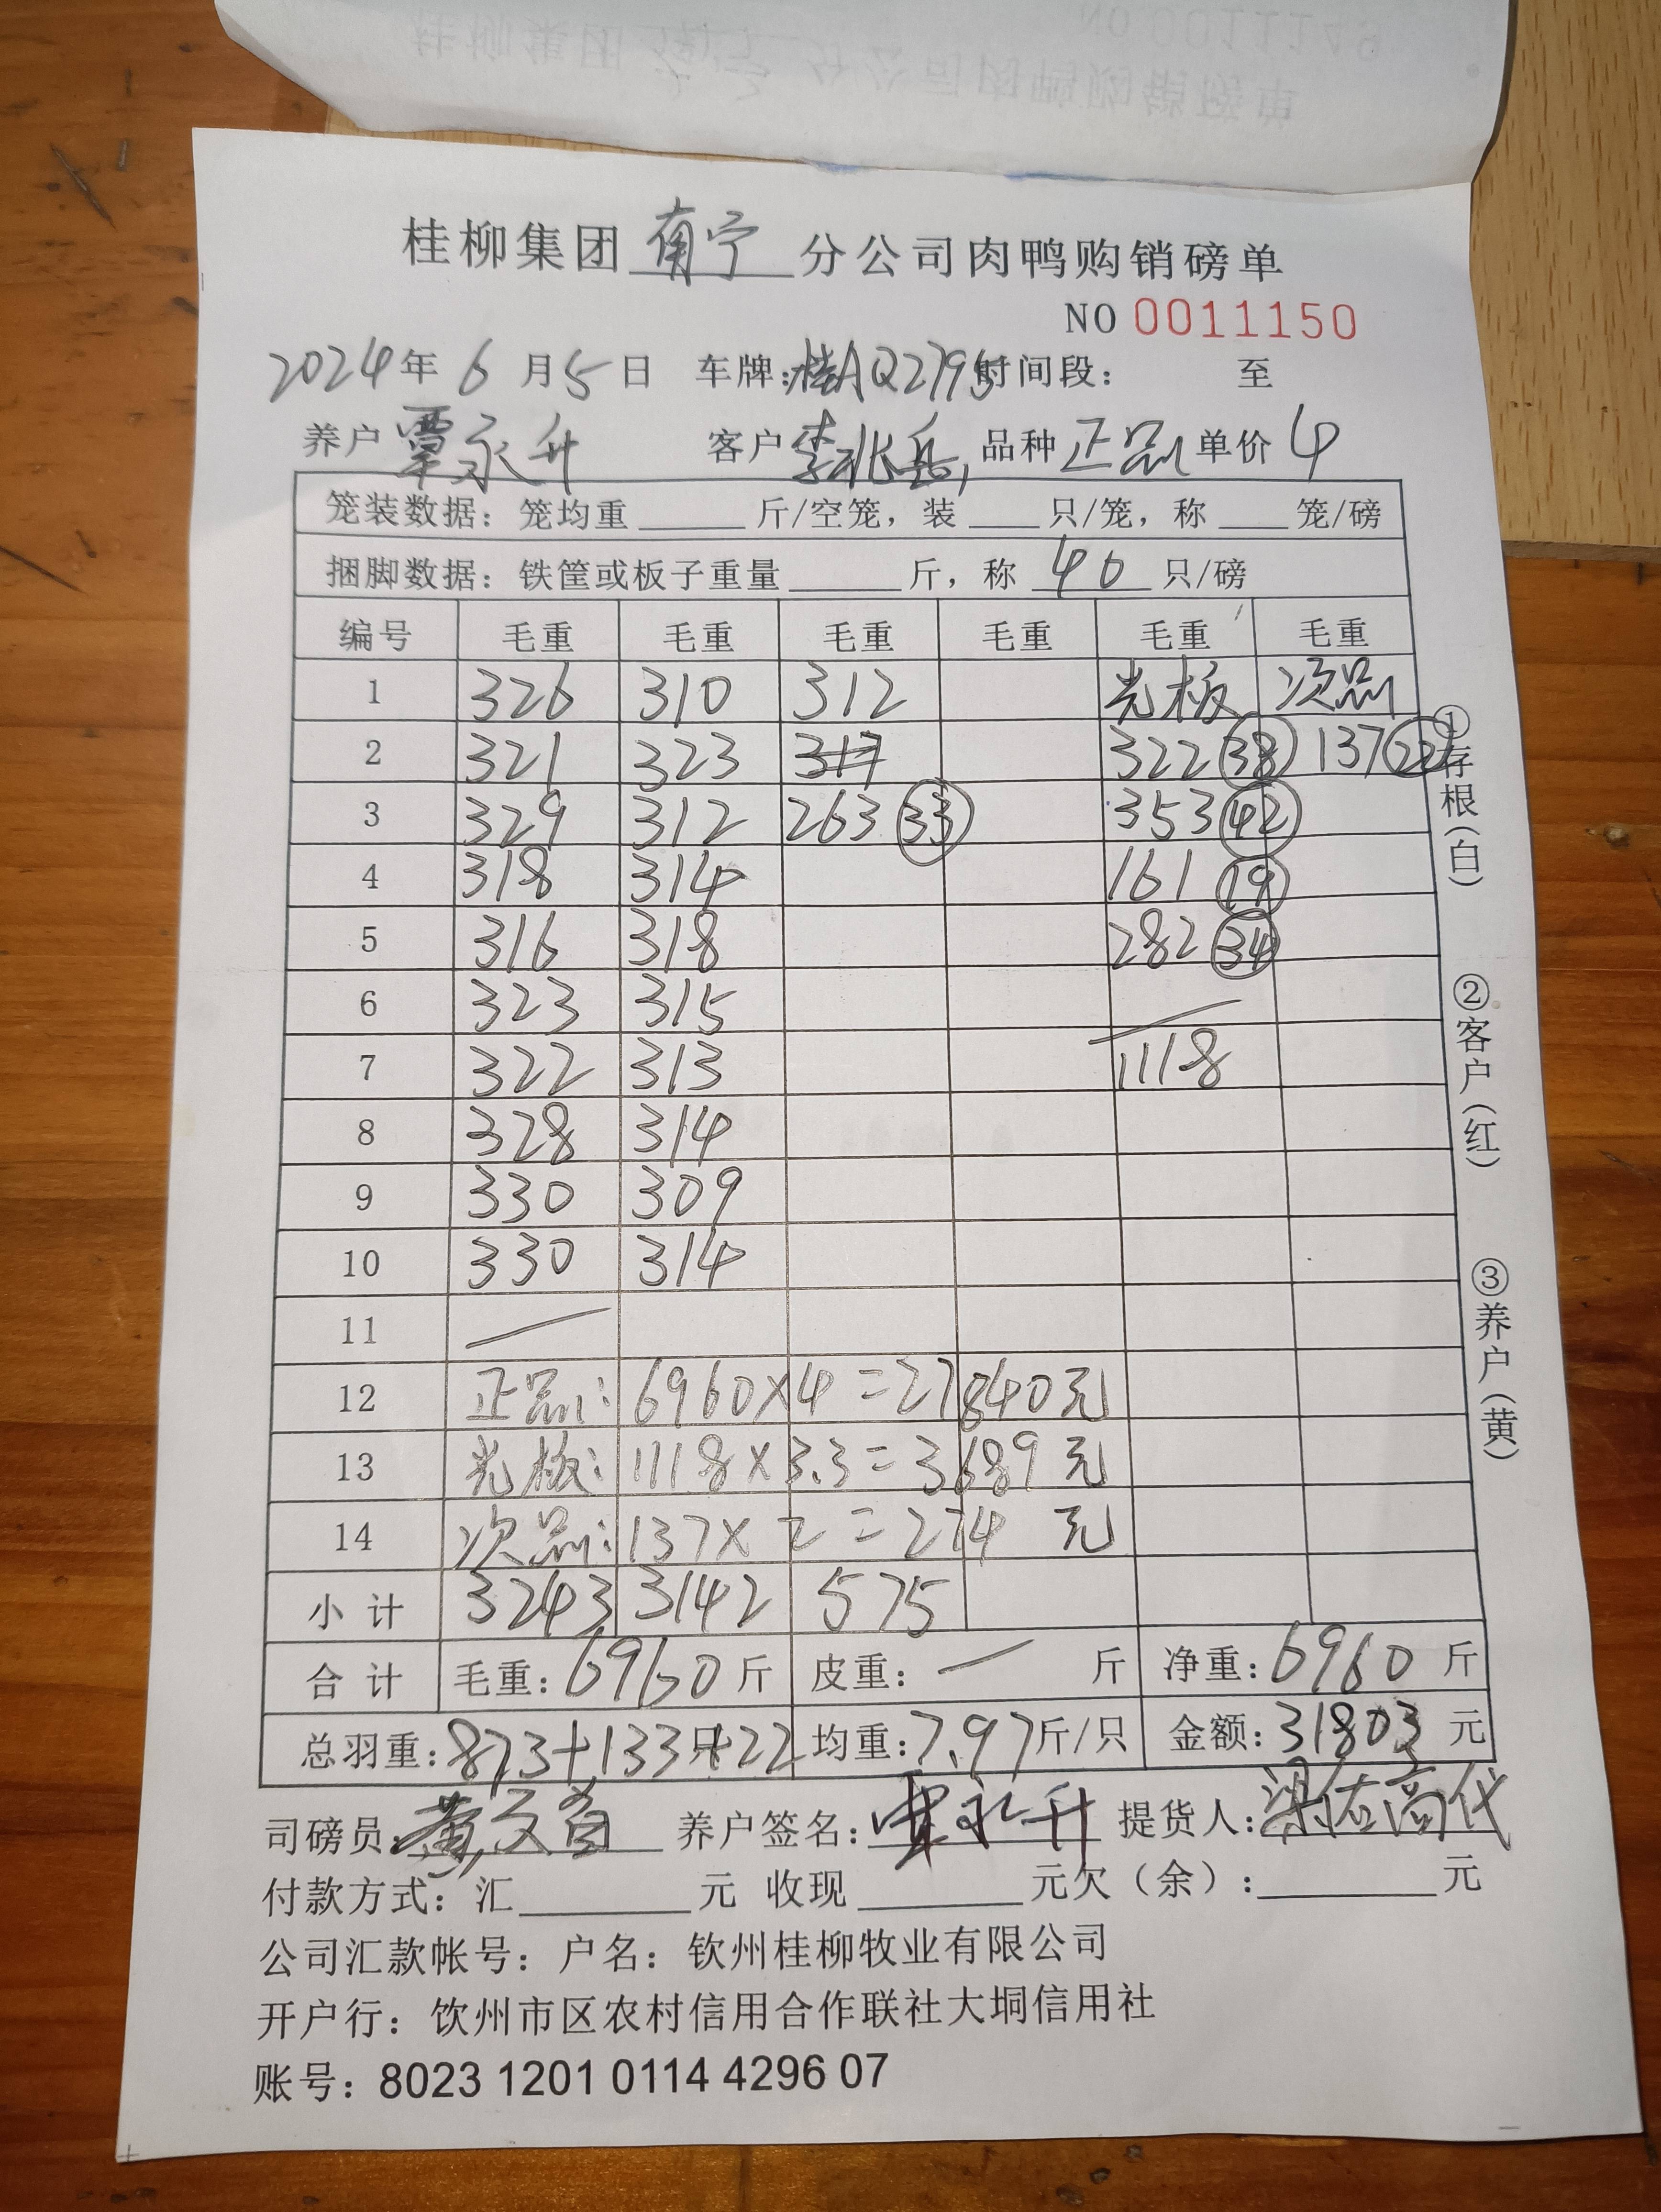 桂柳集团 南宁 分公司肉鸭购销磅单
NO 0011150
2024年 6 月 5 日 车牌:桂AQ2795 时间段: 至
养户 覃永升 客户 李兆岳 品种 正品 单价 4
笼装数据: 笼均重 斤/空笼, 装 只/笼, 称 笼/磅
捆脚数据: 铁筐或板子重量 斤, 称 40 只/磅
编号 毛重 毛重 毛重 毛重 毛重 毛重
1 326 310 312 光板 次品
2 321 323 317 322 38 137 22
3 329 312 263 33 353 42
4 318 314 161 19
5 316 318 282 34
6 323 315
7 322 313 1118
8 328 314
9 330 309
10 330 314
11
12 正品: 6960×4=27840元
13 光板: 1118×3.3=3689元
14 次品: 137×2=274元
小计 3243 3142 575
合计 毛重: 6960 斤 皮重: 斤 净重: 6960 斤
总羽重: 873+133只+22 均重: 7.97 斤/只 金额: 31803 元
司磅员: 黄 养户签名: 覃永升 提货人: 梁佐高代
付款方式: 汇 元 收现 元欠(余): 元
公司汇款帐号: 户名: 钦州桂柳牧业有限公司
开户行: 钦州市区农村信用合作联社大垌信用社
账号: 8023 1201 0114 4296 07
①存根(白)
②客户(红)
③养户(黄)